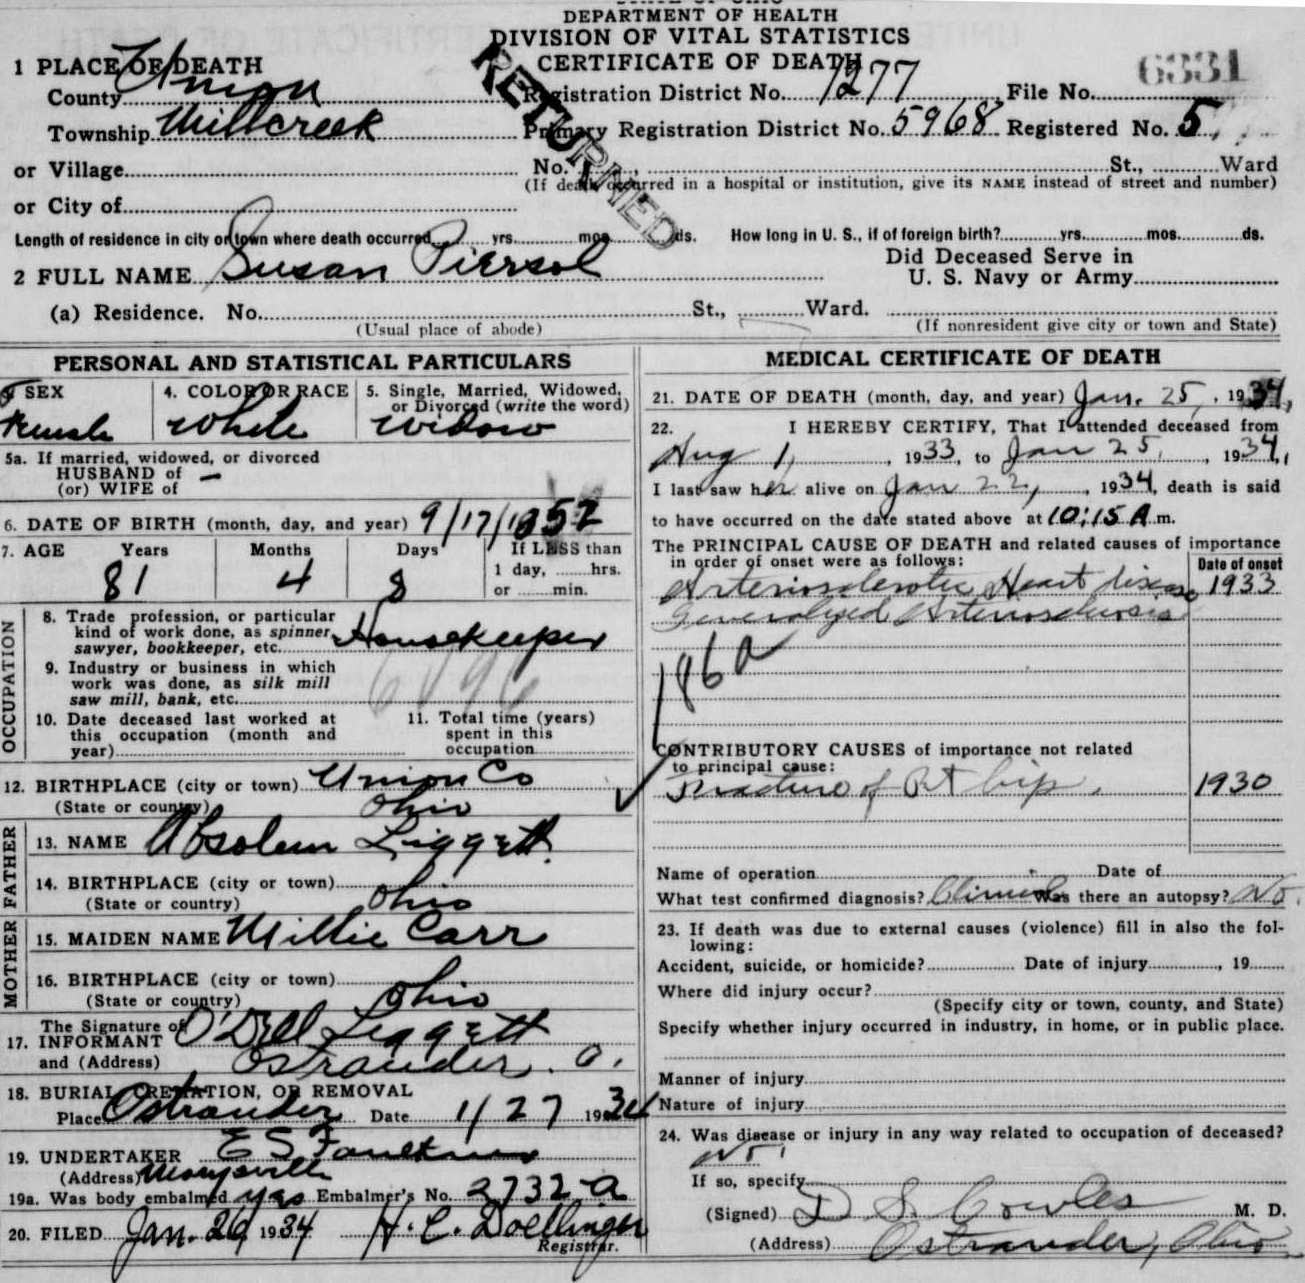 DEPARTMENT OF HEALTH
DIVISION OF VITAL STATISTICS
CERTIFICATE OF DEATH
RETURNED
6331
1 PLACE OF DEATH
County Union
Registration District No. 1277 File No.
Township Millcreek Primary Registration District No. 5968 Registered No. 5
or Village No. St., Ward
(If death occurred in a hospital or institution, give its NAME instead of street and number)
or City of
Length of residence in city or town where death occurred yrs. mos. ds. How long in U. S., if of foreign birth? yrs. mos. ds.
2 FULL NAME Susan Piersol
Did Deceased Serve in
U. S. Navy or Army
(a) Residence. No. St., Ward.
(Usual place of abode) (If nonresident give city or town and State)
PERSONAL AND STATISTICAL PARTICULARS
3 SEX
Female
4. COLOR OR RACE
White
5. Single, Married, Widowed,
or Divorced (write the word)
Widow
5a. If married, widowed, or divorced
HUSBAND of —
(or) WIFE of
6. DATE OF BIRTH (month, day, and year) 9/17/1852
7. AGE Years Months Days If LESS than
81 4 8 1 day, hrs.
or min.
OCCUPATION
8. Trade profession, or particular
kind of work done, as spinner,
sawyer, bookkeeper, etc. Housekeeper
9. Industry or business in which
work was done, as silk mill
saw mill, bank, etc. 6896
10. Date deceased last worked at
this occupation (month and
year)
11. Total time (years)
spent in this
occupation
12. BIRTHPLACE (city or town) Union Co
(State or country) Ohio
FATHER
13. NAME Absolem Liggett
14. BIRTHPLACE (city or town)
(State or country) Ohio
MOTHER
15. MAIDEN NAME Millie Carr
16. BIRTHPLACE (city or town)
(State or country) Ohio
17. The Signature of
INFORMANT O'Dell Liggett
and (Address) Ostrander. O.
18. BURIAL, CREMATION, OR REMOVAL
Place Ostrander Date 1/27 1934
19. UNDERTAKER E S Faulkner
(Address) Marysville
19a. Was body embalmed yes Embalmer's No. 2732-a
20. FILED Jan. 26 1934 H. C. Doellinger
Registrar.
MEDICAL CERTIFICATE OF DEATH
21. DATE OF DEATH (month, day, and year) Jan. 25, 1934,
22. I HEREBY CERTIFY, That I attended deceased from
Aug 1, 1933, to Jan 25, 1934,
I last saw her alive on Jan 22, 1934, death is said
to have occurred on the date stated above at 10:15 A.m.
The PRINCIPAL CAUSE OF DEATH and related causes of importance
in order of onset were as follows: Date of onset
Arteriosclerotic Heart disease 1933
Generalized Arteriosclerosis
186a
CONTRIBUTORY CAUSES of importance not related
to principal cause:
Fracture of Rt hip. 1930
Name of operation Date of
What test confirmed diagnosis? Clinical Was there an autopsy? No.
23. If death was due to external causes (violence) fill in also the fol-
lowing:
Accident, suicide, or homicide? Date of injury , 19
Where did injury occur?
(Specify city or town, county, and State)
Specify whether injury occurred in industry, in home, or in public place.
Manner of injury
Nature of injury
24. Was disease or injury in any way related to occupation of deceased?
No.
If so, specify
(Signed) D S. Cowles M. D.
(Address) Ostrander, Ohio